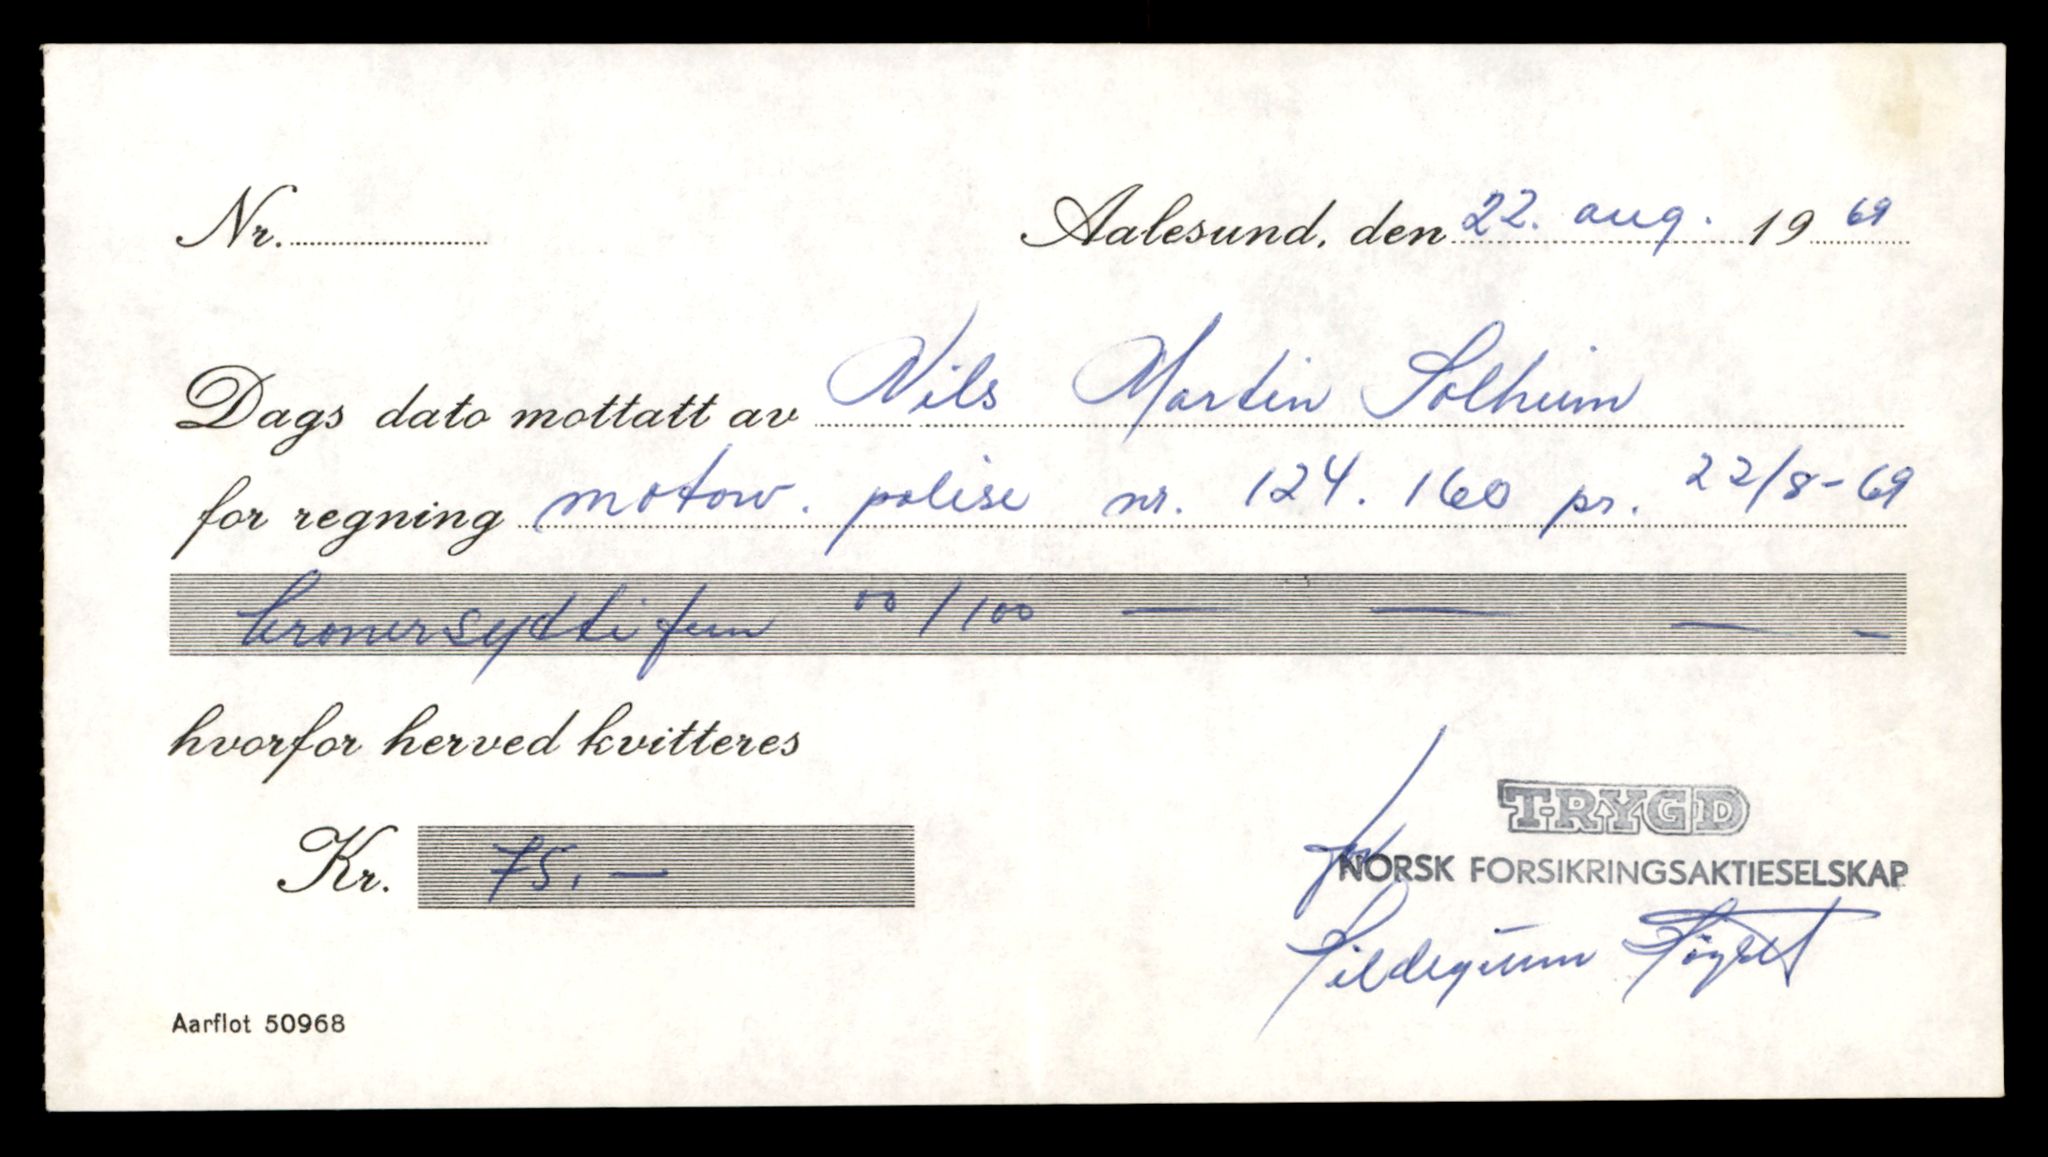 Nr. ............ Aalesund, den 22. aug. 1969
Dags dato mottatt av Nils Martin Solheim
for regning motorv. polise nr. 124.160 pr. 22/8-69
kronersyttifem 00/100 — — — -
hvorfor herved kvitteres
Kr. 75.—
TRYGD
NORSK FORSIKRINGSAKTIESELSKAP
Aarflot 50968